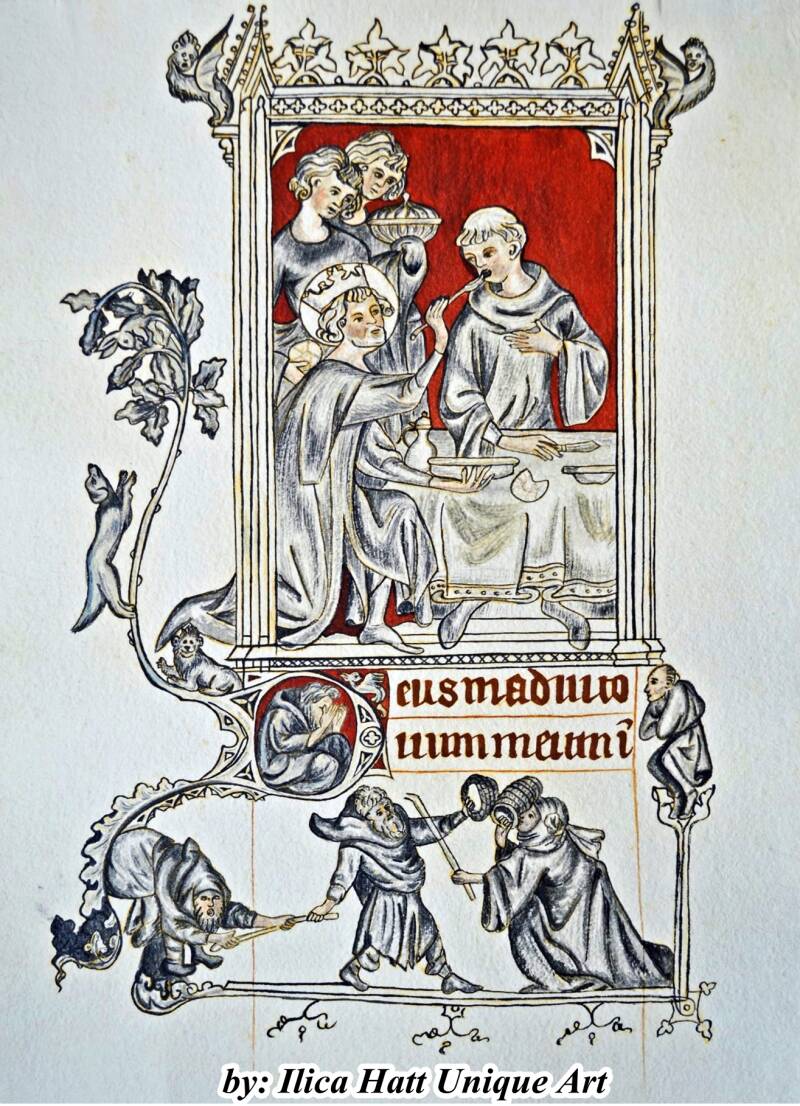 Deus in adiuto
rium meum in
by: Ilica Hatt Unique Art